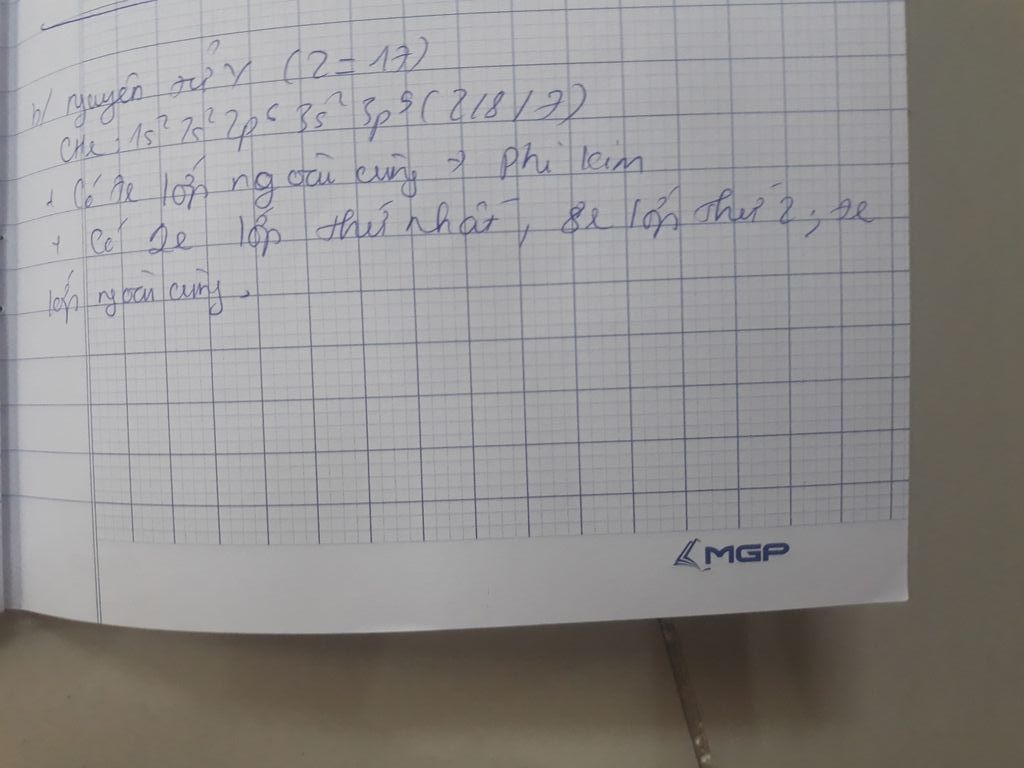 b/ nguyên tử Y (Z = 17)
CHe: 1s² 2s² 2p⁶ 3s² 3p⁵ (2/8/7)
+ Có 7e lớp ngoài cùng → phi kim
+ Có 2e lớp thứ nhất, 8e lớp thứ 2, 7e
lớp ngoài cùng.
MGP